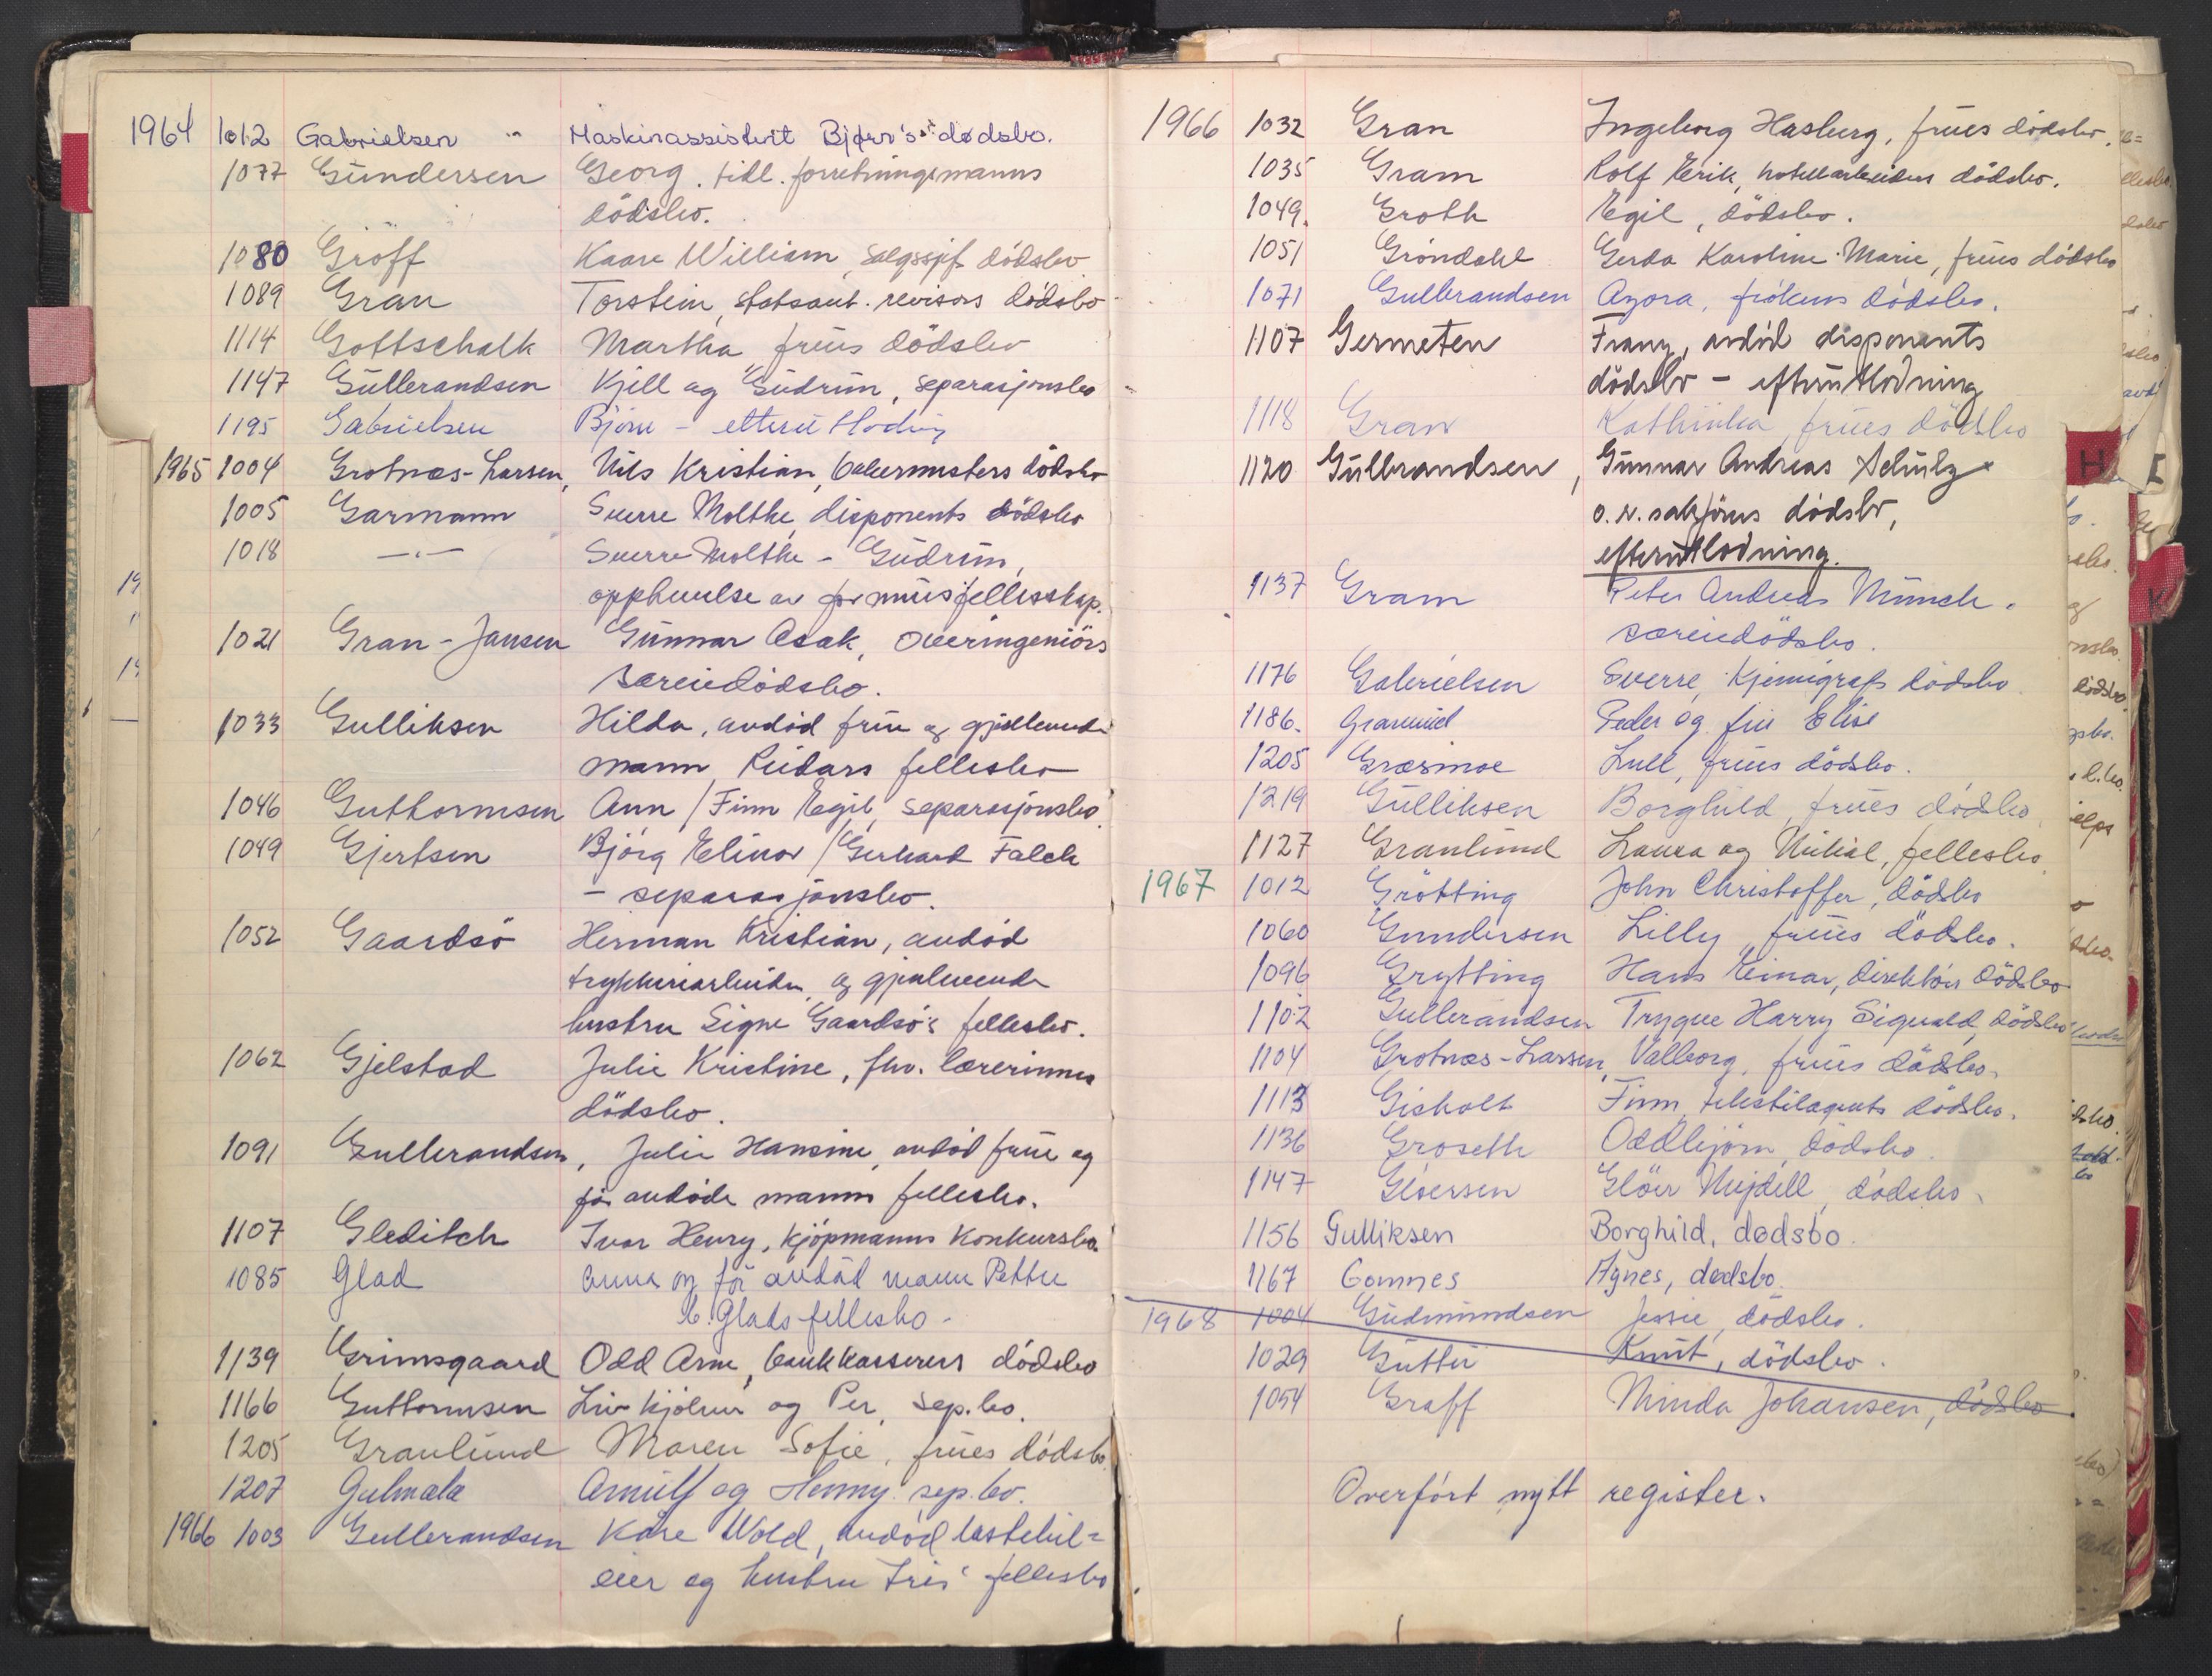 1964 1012 Gabrielsen Maskinassistent Bjørn's dødsbo.
1077 Gundersen Georg. tidl. forretningsmanns
dödsbo.
1080 Gröff Kaare William, salgssjefs dödsbo
1089 Gran Torstein, statsaut. revisors dödsbo
1114 Gottschalk Martha frues dödsbo
1147 Gullbrandsen Kjell og Gudrun, separasjonsbo
1195 Gabrielsen Bjørn - etterutlodning
1965 1004 Grotnæs-Larsen, Nils Kristian, bakermesters dödsbo
1005 Garmann Sverre Molthe, disponents dödsbo
1018 —"— Sverre Molthe - Gudrun,
opphevelse av formuesfellesskap.
1021 Gran-Jansen Gunnar Asak, overingeniörs
særeiedödsbo.
1033 Gulliksen Hilda, avdöd frue og gjenlevende
mann Reidars fellesbo
1046 Guttormsen Ann / Finn Egil, separasjonsbo
1049 Gjertsen Björg Elinor / Gerhard Falch
- separasjonsbo.
1052 Gaardsö Herman Kristian, avdöd
trykkeriarbeider og gjenlevende
hustru Signe Gaardsö's fellesbo.
1062 Gjelstad Julie Kristine, fhv. lærerinnes
dödsbo.
1091 Gullbrandsen, Julie Hansine, avdöd frue og
för avdöde manns fellesbo.
1107 Gleditch Ivar Henry, kjöpmanns konkursbo.
1085 Glad Anna og för avdöd mann Petter
C. Glads fellesbo -
1139 Grimsgaard Odd Arne, bankkasserers dödsbo
1166 Guttormsen Liv Kjölrun og Per, sep.bo.
1205 Granlund Maren Sofie, frues dödsbo
1207 Gulmala Arnulf og Henny. sep.bo.
1966 1003 Gullbrandsen Kåre Wold, avdöd lastebil=
eier og hustru Iris' fellesbo
1966 1032 Gran Ingeborg Hasberg, frues dödsbo.
1035 Gram Rolf Erik, hotellarbeiders dödsbo.
1049. Groth Egil, dödsbo.
1051 Gröndahl Gerda Karoline Marie, frues dödsbo
1071 Gulbrandsen Agora, frökens dödsbo.
1107 Germeten Franz, avdöd disponents
dödsbo - efterutlodning
1118 Gran Kathinka frues dödsbo
1120 Gulbrandsen, Gunnar Andreas Schulz
o.r. sakförers dödsbo,
efterutlodning.
1137 Gram Peter Andreas Munch.
særeiedödsbo.
1176 Gabrielsen Sverre, kjemigrafs dödsbo
1186. Granund Peder og fru Elise
1205 Græsmoe Lull, frues dödsbo.
1219 Gulliksen Borghild, frues dödsbo
1127 Granlund Laura og Mikal, fellesbo
1967 1012 Grötting John Christoffer, dödsbo
1060 Gundersen Lilly, frues dödsbo.
1096 Grytting Hans Einar, direktörs dödsbo
1102 Gullbrandsen Trygve Harry Sigvald, dödsbo
1104 Grotnæs-Larsen, Valborg, frues dödsbo.
1113 Gisholt Finn, tekstilagents dödsbo.
1136 Groseth Oddbjörn, dödsbo.
1147 Glöersen Glöer Mejdell, dödsbo.
1156 Gulliksen Borghild, dødsbo.
1167 Gomnes Agnes, dødsbo.
1968 1004 Gudmundsen Jessie, dödsbo.
1029 Gutter Knut, dödsbo.
1054 Graff Minda Johansen, dödsbo.
Overfört nytt register.
H
I
K